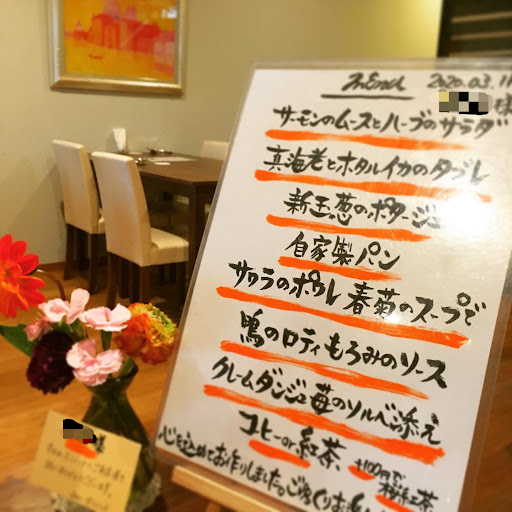 Menu 2020.03.11
様
サーモンのムースとハーブのサラダ
真海老とホタルイカのタブレ
新玉葱のポタージュ
自家製パン
サワラのポワレ 春菊のスープで
鴨のロティもろみのソース
クレームダンジュ苺のソルベ添え
コーヒーor紅茶
+100円で
心を込めてお作りしました。ごゆっくりお
様